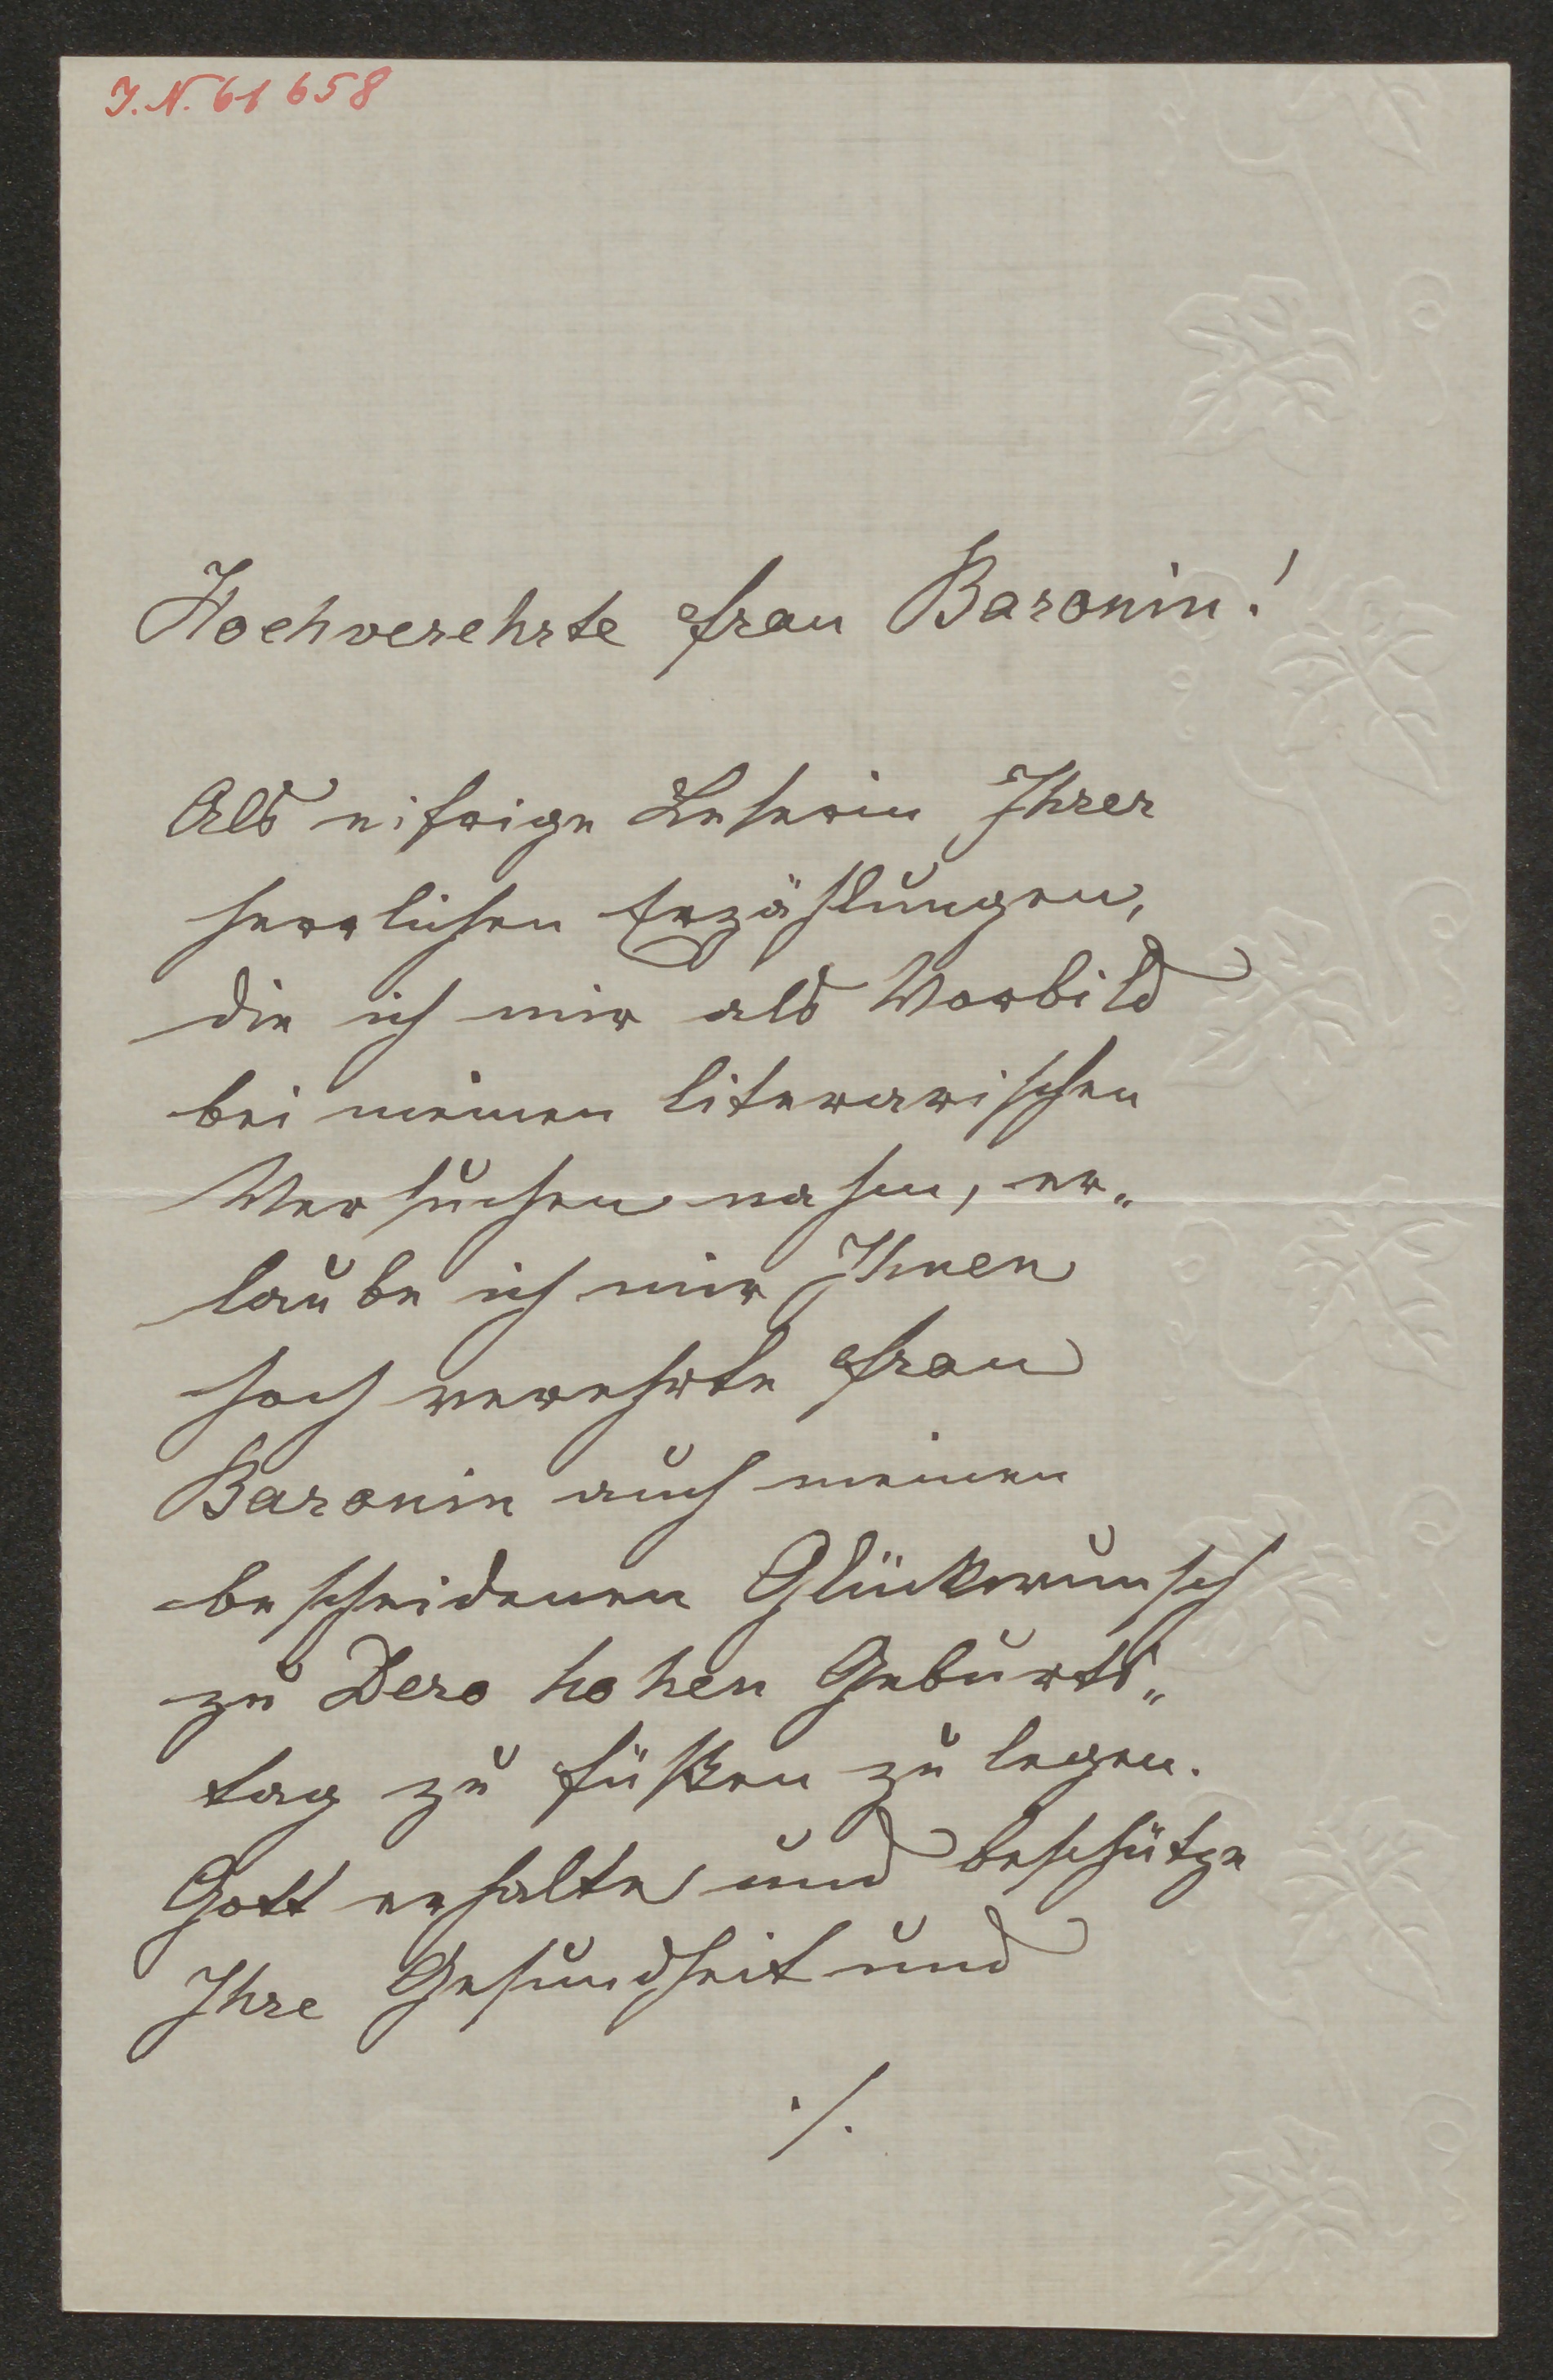 I.N. 61658
Hochverehrte Frau Baronin!
Als eifrige Leserin Ihrer
herrlichen Erzählungen,
die ich mir als Vorbild
bei meinen literarischen
Versuchen nahm, er„
laube ich mir Ihnen
hoch verehrte Frau
Baronin auch meinen
bescheidenen Glückwunsch
zu Dero hohen Geburts„
tag zu Füßen zu legen.
Gott erhalte und beschütze
Ihre Gesundheit und
./.